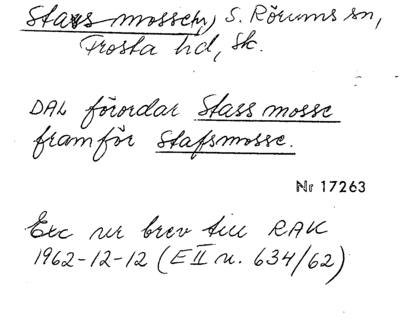 Stass mossen, S. Rörums sn,
Frosta hd, Sk.
DAL förordar Stass mosse
framför Stafsmosse.
Nr 17263
Exc ur brev till RAK
1962-12-12 (E II u. 634/62)